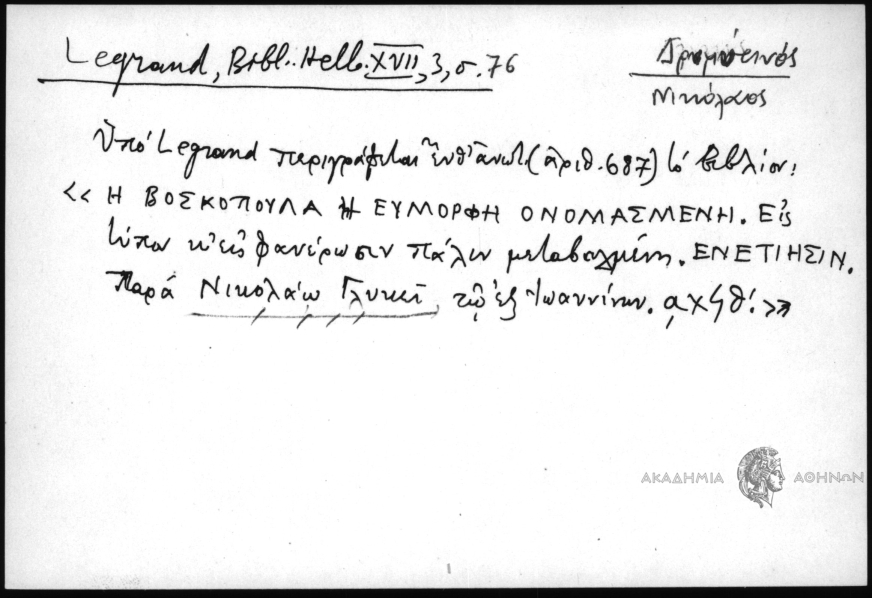 Legrand, Bibl. Hell. XVII, 3, σ. 76
Δρυμυτινός
Νικόλαος
Ὑπό Legrand περιγράφεται ἔνθ' ἀνωτ. (ἀριθ. 687) τό βιβλίον:
<< Η ΒΟΣΚΟΠΟΥΛΑ Η ΕΥΜΟΡΦΗ ΟΝΟΜΑΣΜΕΝΗ. Εἰς
τύπον κ' εἰς φανέρωσιν πάλιν μεταβαλμένη. ΕΝΕΤΙΗΣΙΝ.
Παρά Νικολάῳ Γλυκεῖ τῷ ἐξ Ἰωαννίνων. ͵αχϟθ΄. >>
ΑΚΑΔΗΜΙΑ ΑΘΗΝΩΝ